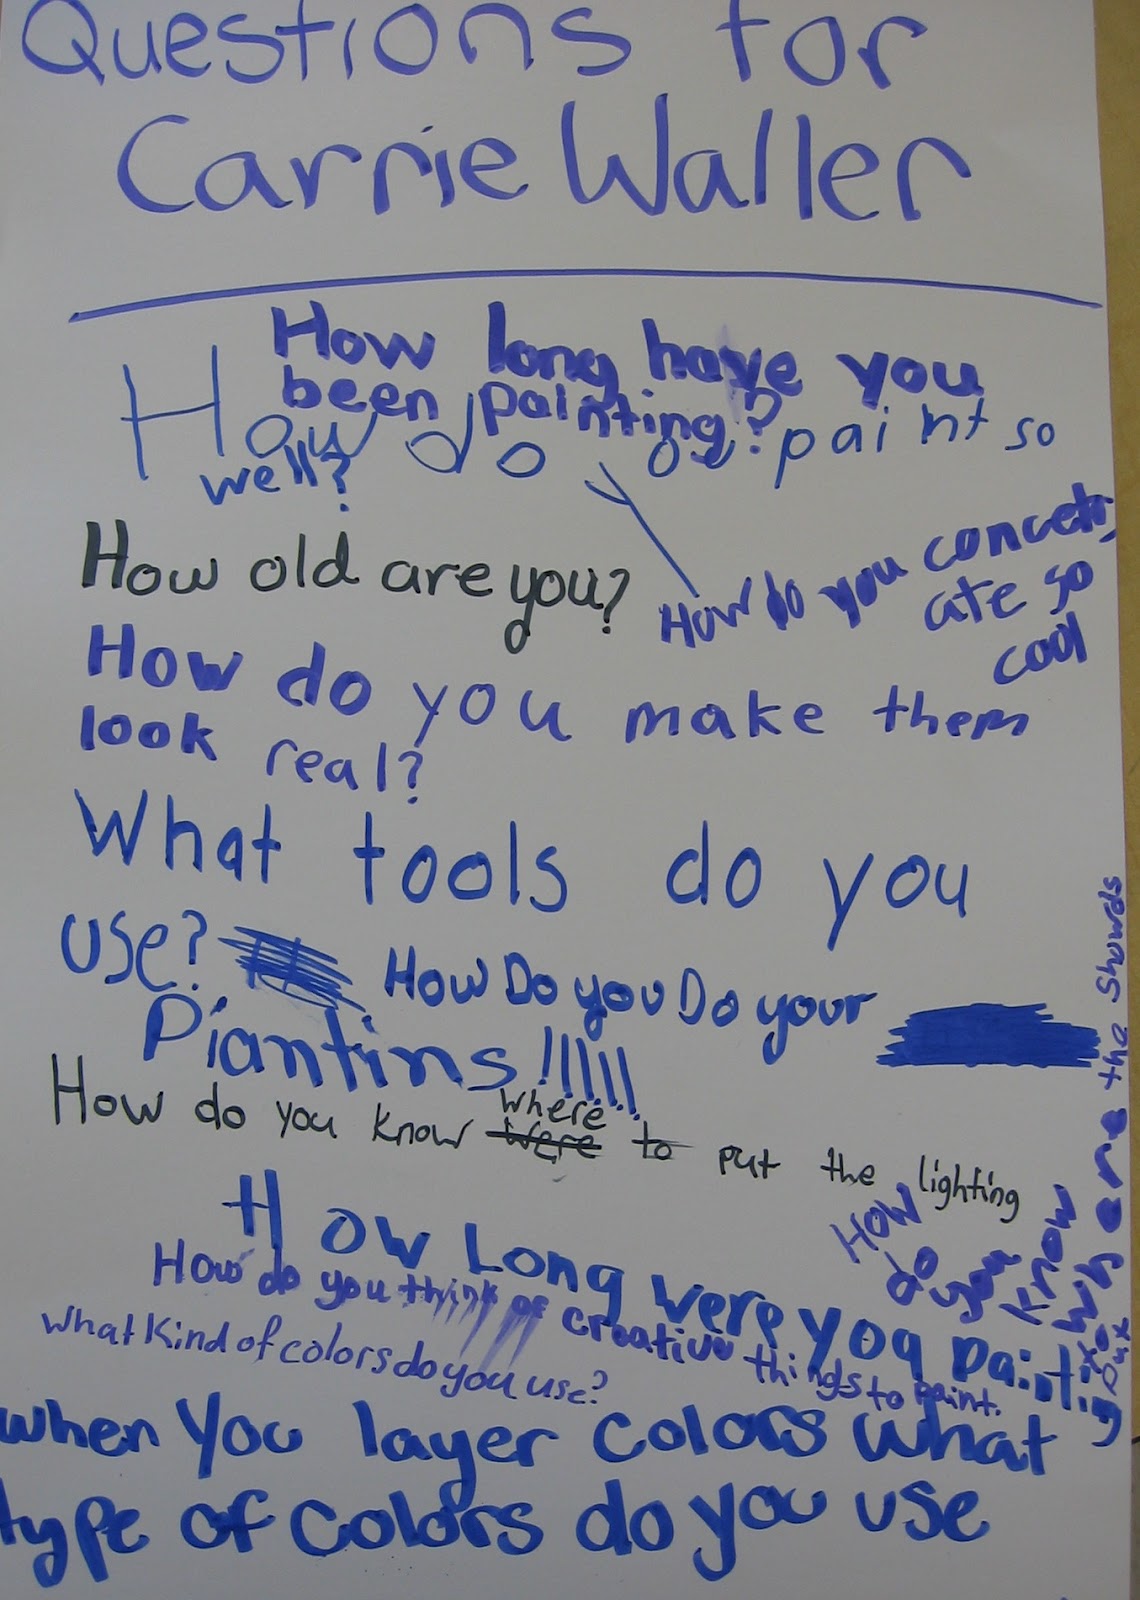 Questions for
Carrie Waller
How long have you
been painting?
How do you paint so
well?
How old are you?
How do you concetr
ate so
cool
How do you make them
look real?
What tools do you
use?
How Do you Do your
Piantins!!!!!!
How do you know where
put the lighting
How do you know where to put tha Showds
How Long were you painting
How do you think of creative things to paint.
What kind of colors do you use?
when you layer colors what
type of colors do you use